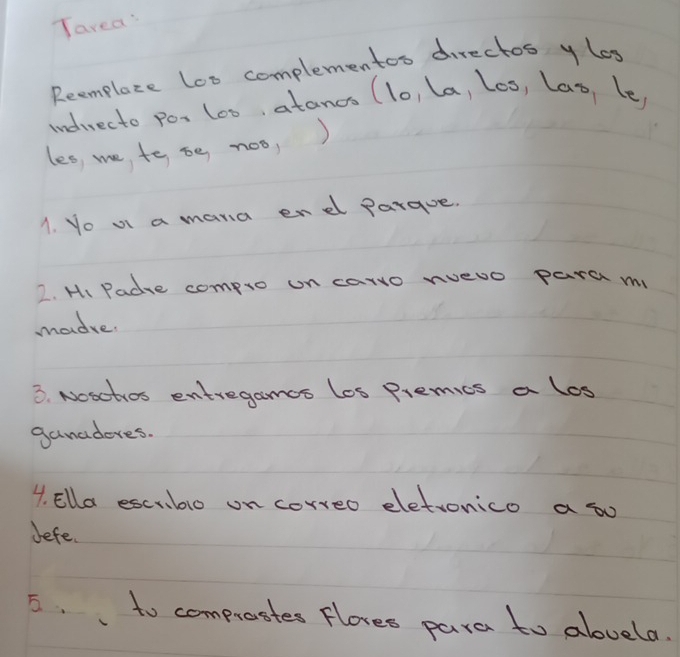 Tarea:
Reemplaze los complementos directos y los
indirecto por los atanos (lo, la, los, las, le,
les, me, te, se, nos, )
1. Yo vi a maria en el parque.
2. Mi Padre compro un carro nuevo para mi
madre.
3. Nosotros entregamos los Premios a los
ganadores.
4. Ella escribio un correo eletronico a su
Jefe.
5. tu comprastes Flores para tu abuela.